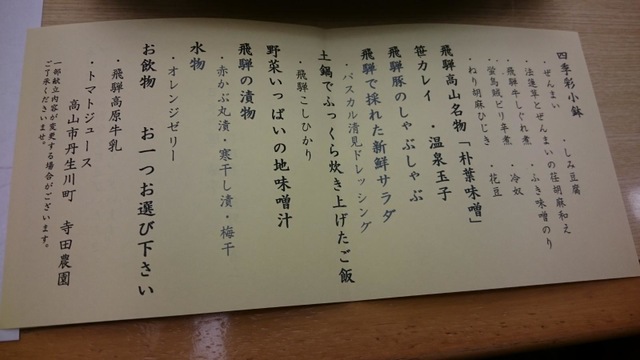 四季彩小鉢
・ぜんまい ・しみ豆腐
・法蓮草とぜんまいの荏胡麻和え
・飛騨牛しぐれ煮 ・ふき味噌のり
・蛍烏賊ピリ辛煮 ・冷奴
・ねり胡麻ひじき ・花豆
飛騨高山名物「朴葉味噌」
笹カレイ ・温泉玉子
飛騨豚のしゃぶしゃぶ
飛騨で採れた新鮮サラダ
・パスカル清見ドレッシング
土鍋でふっくら炊き上げたご飯
・飛騨こしひかり
野菜いっぱいの地味噌汁
飛騨の漬物
・赤かぶ丸漬・寒干し漬・梅干
水物
・オレンジゼリー
お飲物 お一つお選び下さい
・飛騨高原牛乳
・トマトジュース
高山市丹生川町 寺田農園
一部献立内容が変更する場合がございます。
ご了承くださいませ。